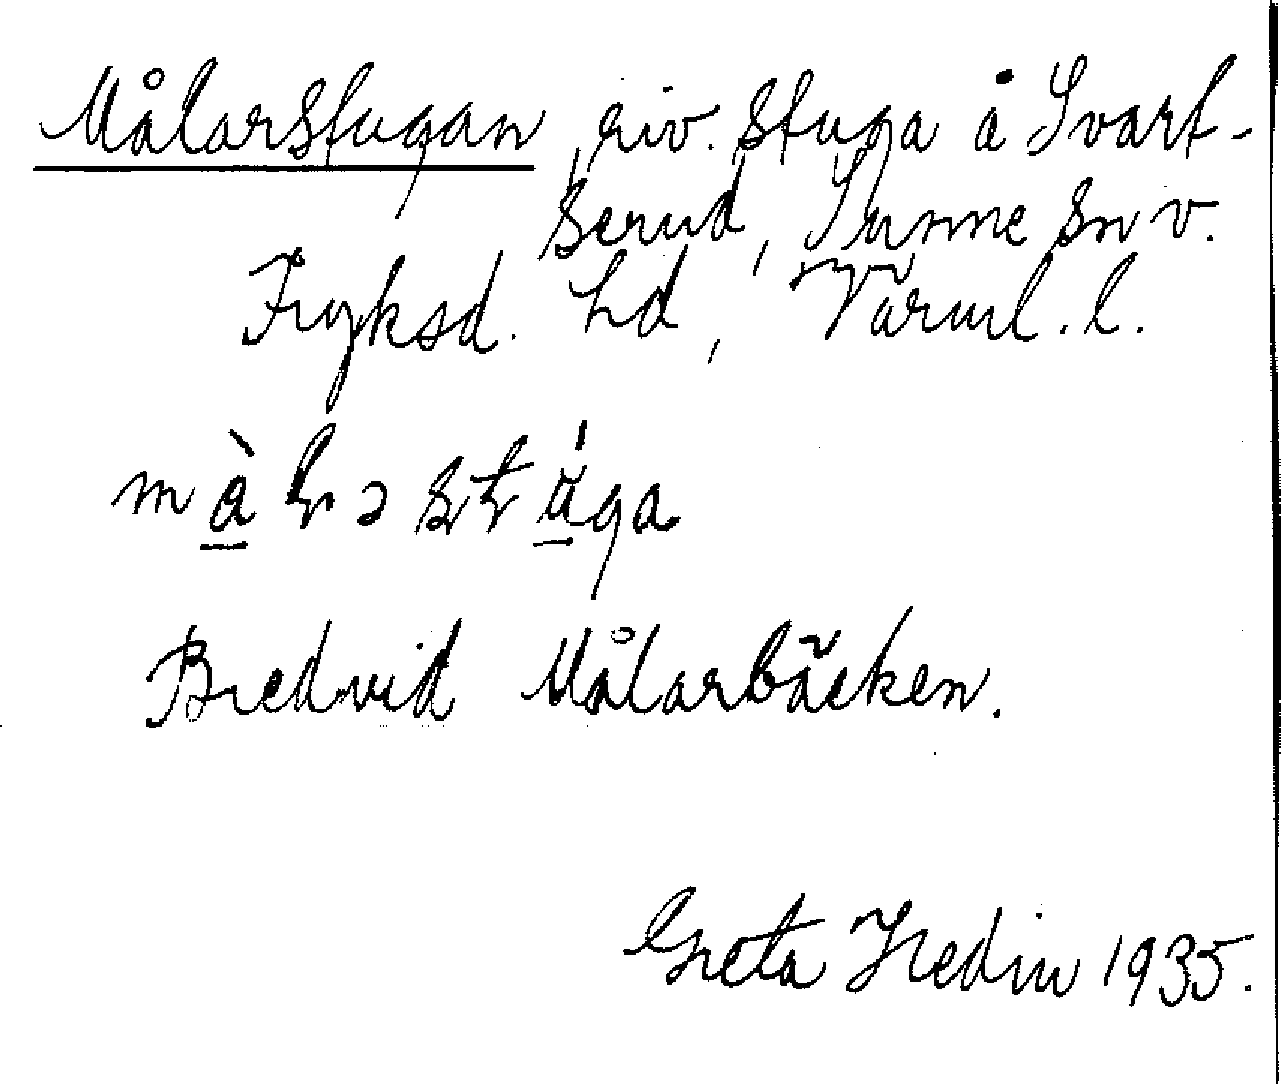 Målarstugan, riv. stuga å Svart-
serud, Sunne sn v.
Fryksd. hd, Värml. l.
Bredvid Målarbäcken.
Greta Hedin 1935.